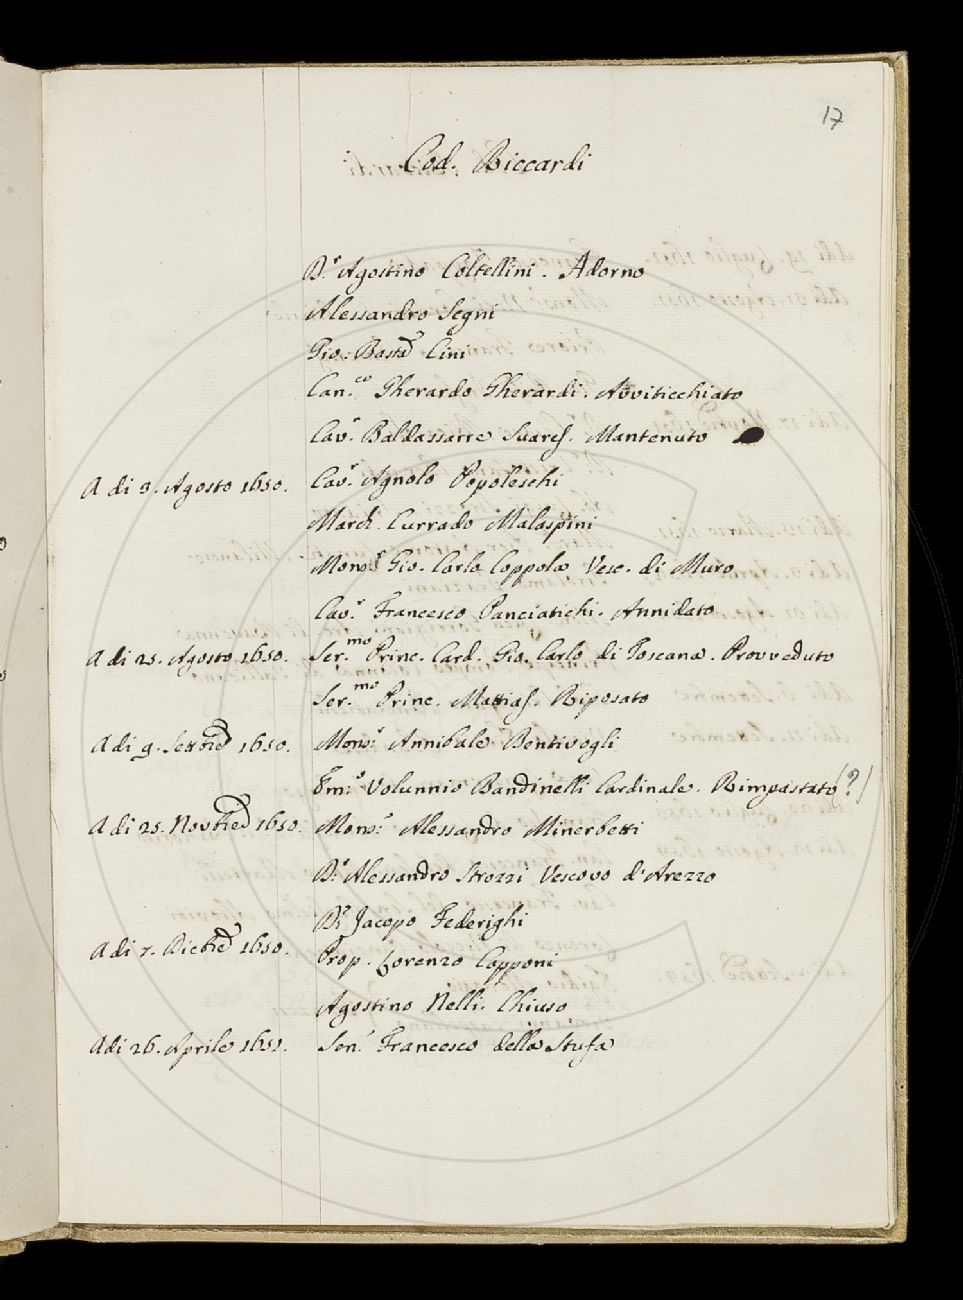 17
Cod. Riccardi
D.r Agostino Coltellini. Adorno
Alessandro Segni
Gio: Basta Cini
Can.co Gherardo Gherardi. Avviticchiato
Cav.r Baldassarre Suares. Mantenuto
A di 3. Agosto 1650. Cav.r Agnolo Popoleschi
March. Currado Malaspini
Mons.r Gio. Carlo Coppola Vesc. di Muro
Cav.r Francesco Panciatichi. Annidato
A di 25. Agosto 1650. Ser.mo Princ. Card. Gio. Carlo di Toscana. Provveduto
Ser.mo Princ. Mattias. Riposato
A di 9. Settbe 1650. Mons.r Annibale Bentivogli
Em.o Volunnio Bandinelli Cardinale. Rimpastato (?)
A di 25. Novbe 1650. Mons.r Alessandro Minerbetti
D.r Alessandro Strozzi Vescovo d'Arezzo
D.r Jacopo Federighi
A di 7. Dicbe 1650. Prop. Lorenzo Copponi
Agostino Nelli. Chiuso
A di 26. Aprile 1651. Sen.r Francesco della Stufa